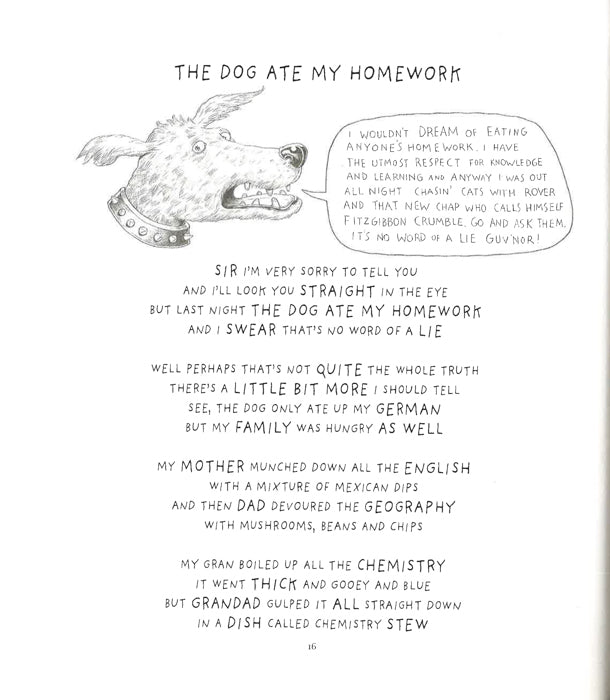 THE DOG ATE MY HOMEWORK
I WOULDN'T DREAM OF EATING
ANYONE'S HOMEWORK. I HAVE
THE UTMOST RESPECT FOR KNOWLEDGE
AND LEARNING AND ANYWAY I WAS OUT
ALL NIGHT CHASIN' CATS WITH ROVER
AND THAT NEW CHAP WHO CALLS HIMSELF
FITZGIBBON CRUMBLE. GO AND ASK THEM.
IT'S NO WORD OF A LIE GUV'NOR!
SIR I'M VERY SORRY TO TELL YOU
AND I'LL LOOK YOU STRAIGHT IN THE EYE
BUT LAST NIGHT THE DOG ATE MY HOMEWORK
AND I SWEAR THAT'S NO WORD OF A LIE
WELL PERHAPS THAT'S NOT QUITE THE WHOLE TRUTH
THERE'S A LITTLE BIT MORE I SHOULD TELL
SEE, THE DOG ONLY ATE UP MY GERMAN
BUT MY FAMILY WAS HUNGRY AS WELL
MY MOTHER MUNCHED DOWN ALL THE ENGLISH
WITH A MIXTURE OF MEXICAN DIPS
AND THEN DAD DEVOURED THE GEOGRAPHY
WITH MUSHROOMS, BEANS AND CHIPS
MY GRAN BOILED UP ALL THE CHEMISTRY
IT WENT THICK AND GOOEY AND BLUE
BUT GRANDAD GULPED IT ALL STRAIGHT DOWN
IN A DISH CALLED CHEMISTRY STEW
16